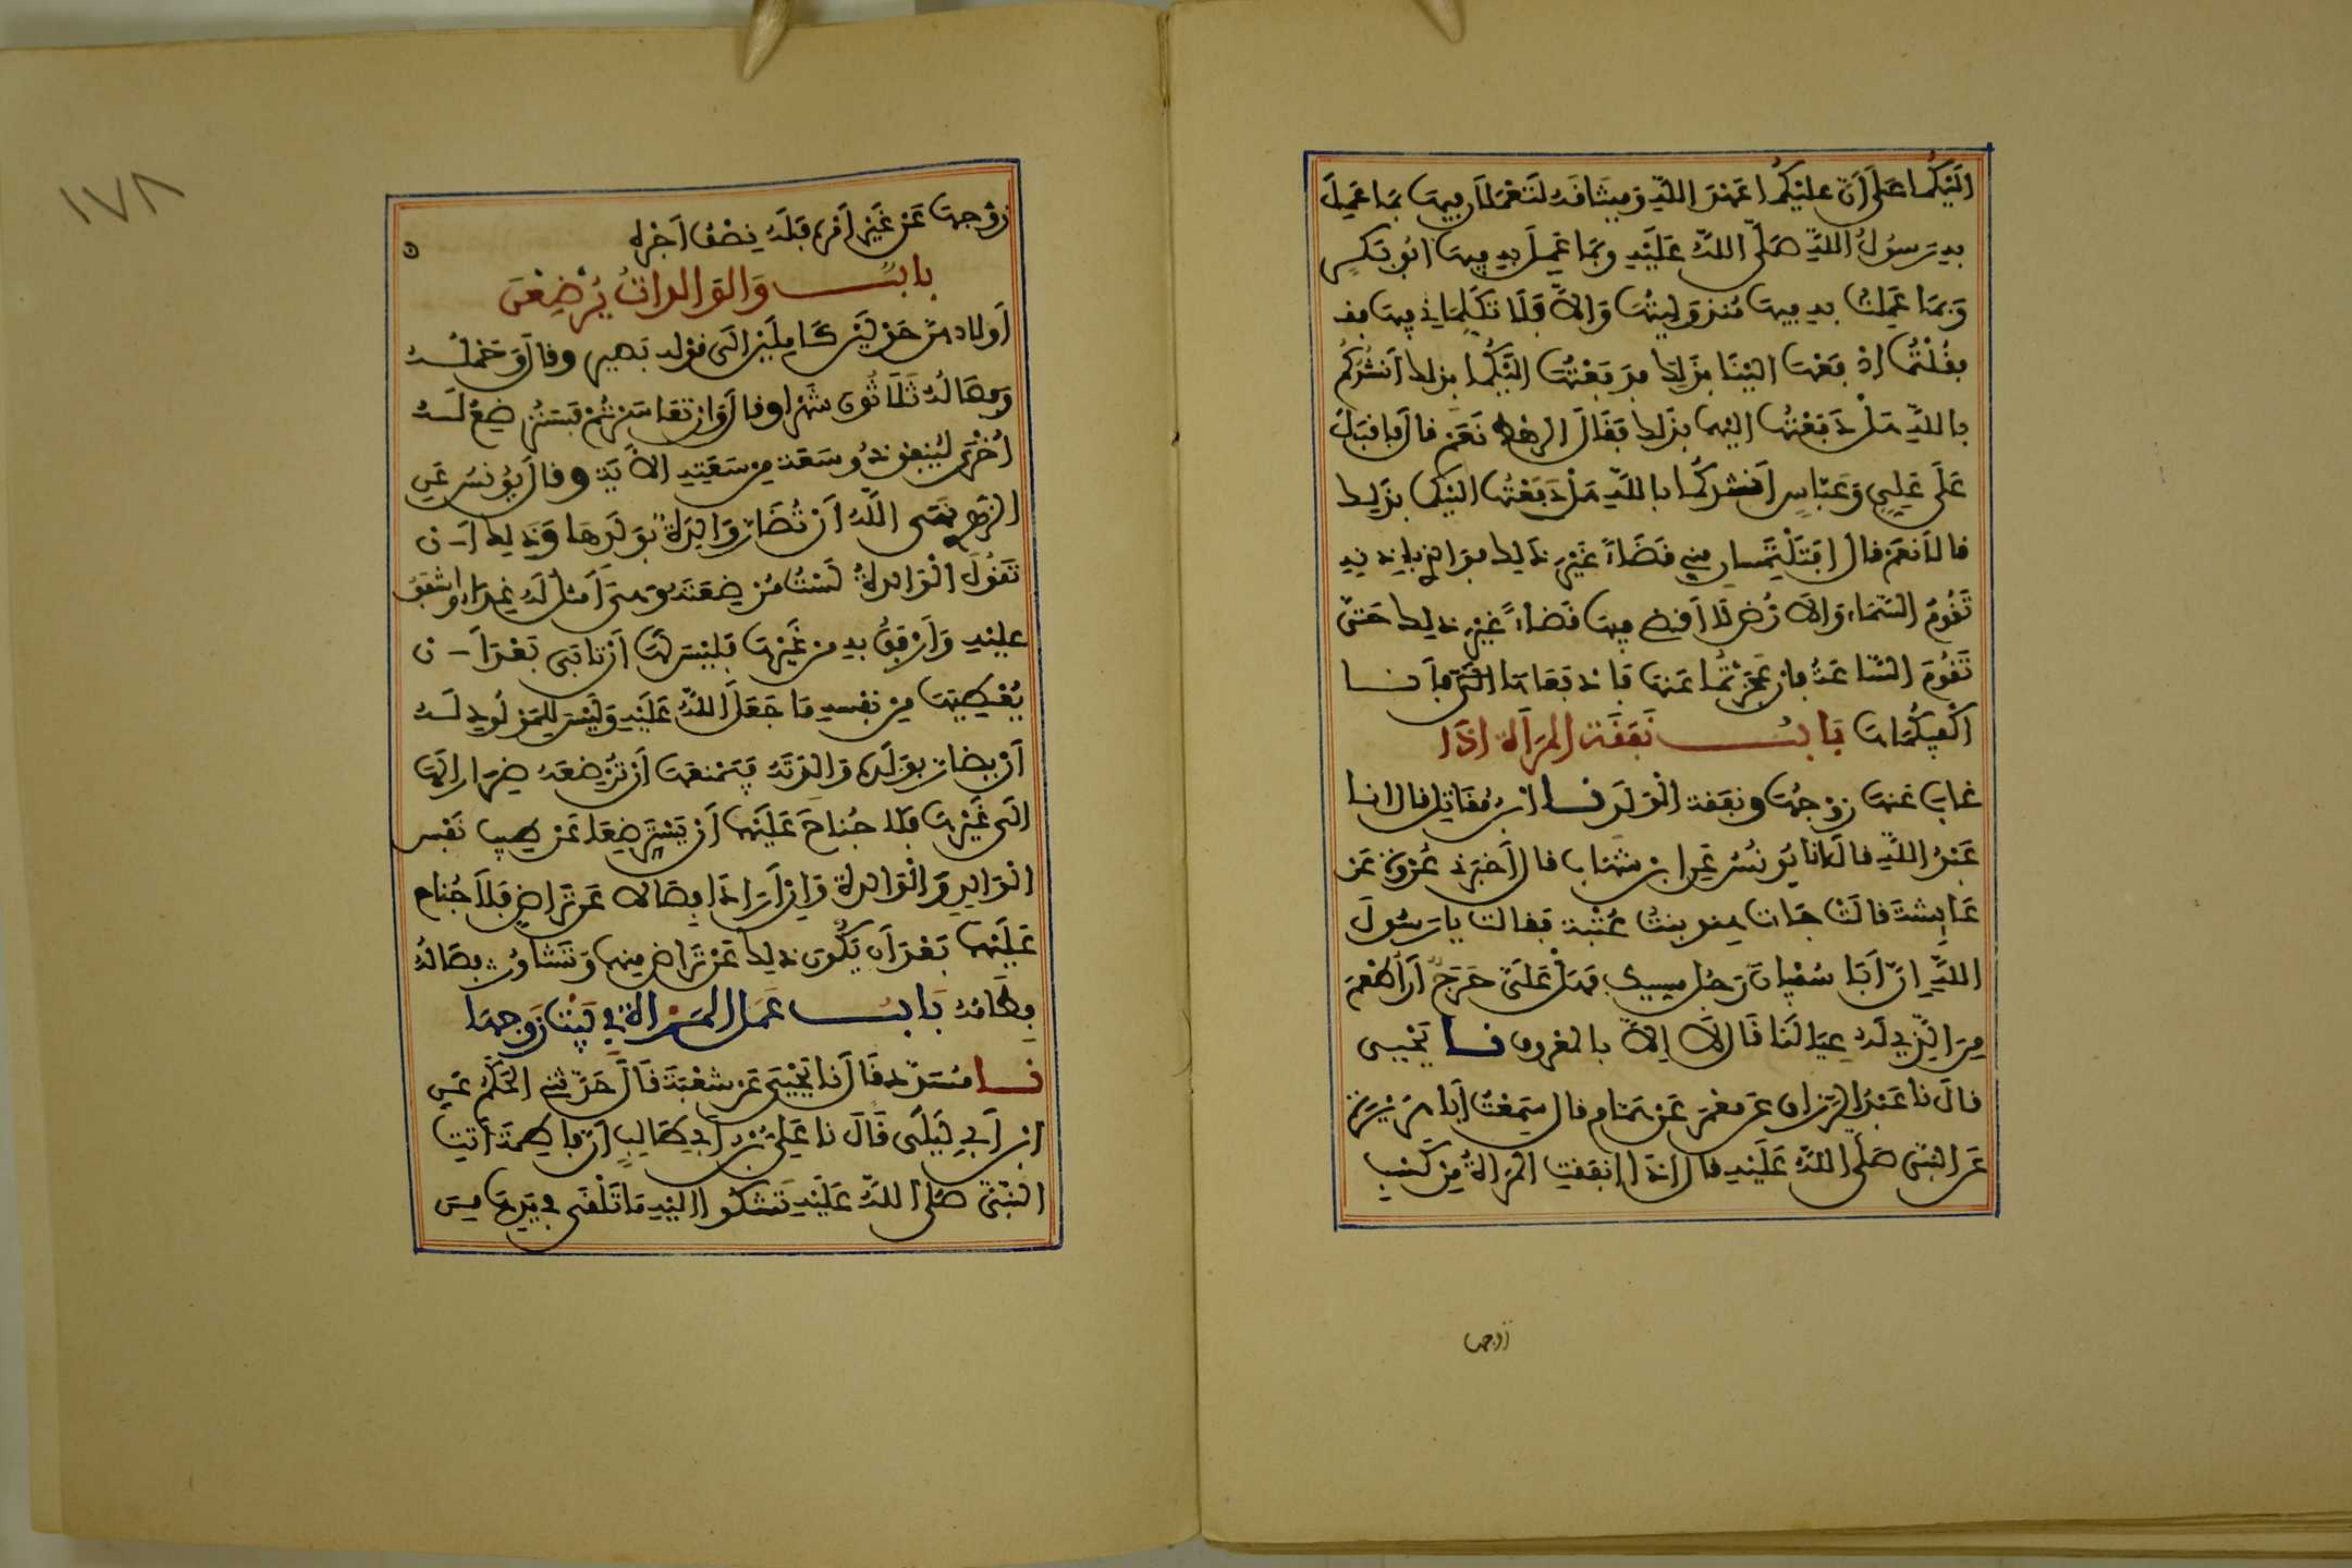 اليكما على أن عليكما عهد الله وميثاقه لتعملان فيها بما عمل
به رسول الله صلى الله عليه وبما عمل به فيها ابو بكر
وبما عملت به فيها منذ وليتها والا فلا تكلماني فيها فـ
فقلتما ادفعها الينا بذلك فدفعتها اليكما بذلك أنشدكم
بالله هل دفعتها اليهما بذلك فقال الرهط نعم قال فاقبل
على علي وعباس أنشدكما بالله هل دفعتها اليكما بذلك
قالا نعم قال افتلتمسان مني قضاء غير ذلك فوالذي بإذنه
تقوم السماء والارض لا أقضي فيها قضاء غير ذلك حتى
تقوم الساعة فإن عجزتما عنها فادفعاها الي فأنا
اكفيكماها باب نفقة المرأة إذا
غاب عنها زوجها ونفقة الولد نا ابن مقاتل قال انا
عبد الله قال انا يونس عن ابن شهاب قال أخبرني عروة عن
عائشة قالت جات هند بنت عتبة فقالت يا رسول
الله إن أبا سفيان رجل مسيك فهل علي حرج أن أطعم
من الذي له عيالنا قال لا إلا بالمعروف نا يحيى
قال نا عبد الرزاق عن معمر عن همام قال سمعت أبا هريرة
عن النبي صلى الله عليه قال إذا انفقت المرأة من كسب
زوجها
١٧٨
زوجها عن غير أمره فله نصف أجره
باب والوالدات يرضعن
أولادهن حولين كاملين الى قوله بصير وقال وحمله
وفصاله ثلاثون شهرا وقال وإن تعاسرتم فسترضع له
أخرى لينفق ذو سعة من سعته الآية وقال يونس عن
الزهري نهى الله أن تضار والدة بولدها وذلك أن
تقول الوالدة لست مرضعته وهي أمثل له غذاء واشفق
عليه وأرفق به من غيرها فليس لها أن تابى بعد أن
يعطيها من نفسه ما جعل الله عليه وليس للمولود له
أن يضار بولده والدته فيمنعها أن ترضعه ضرارا لها
الى غيرها فلا جناح عليهما أن يسترضعا عن طيب نفس
الوالد والوالدة وإن أرادا فصالا عن تراض فلا جناح
عليهما بعد أن يكون ذلك عن تراض منهما وتشاور فصاله
فطامه باب عمل المرأة في بيت زوجها
نا مسدد قال نا يحيى عن شعبة قال حدثني الحكم عن
ابن أبي ليلى قال نا علي بن أبي طالب أن فاطمة أتت
النبي صلى الله عليه تشكوا اليه ما تلقى في يدها من